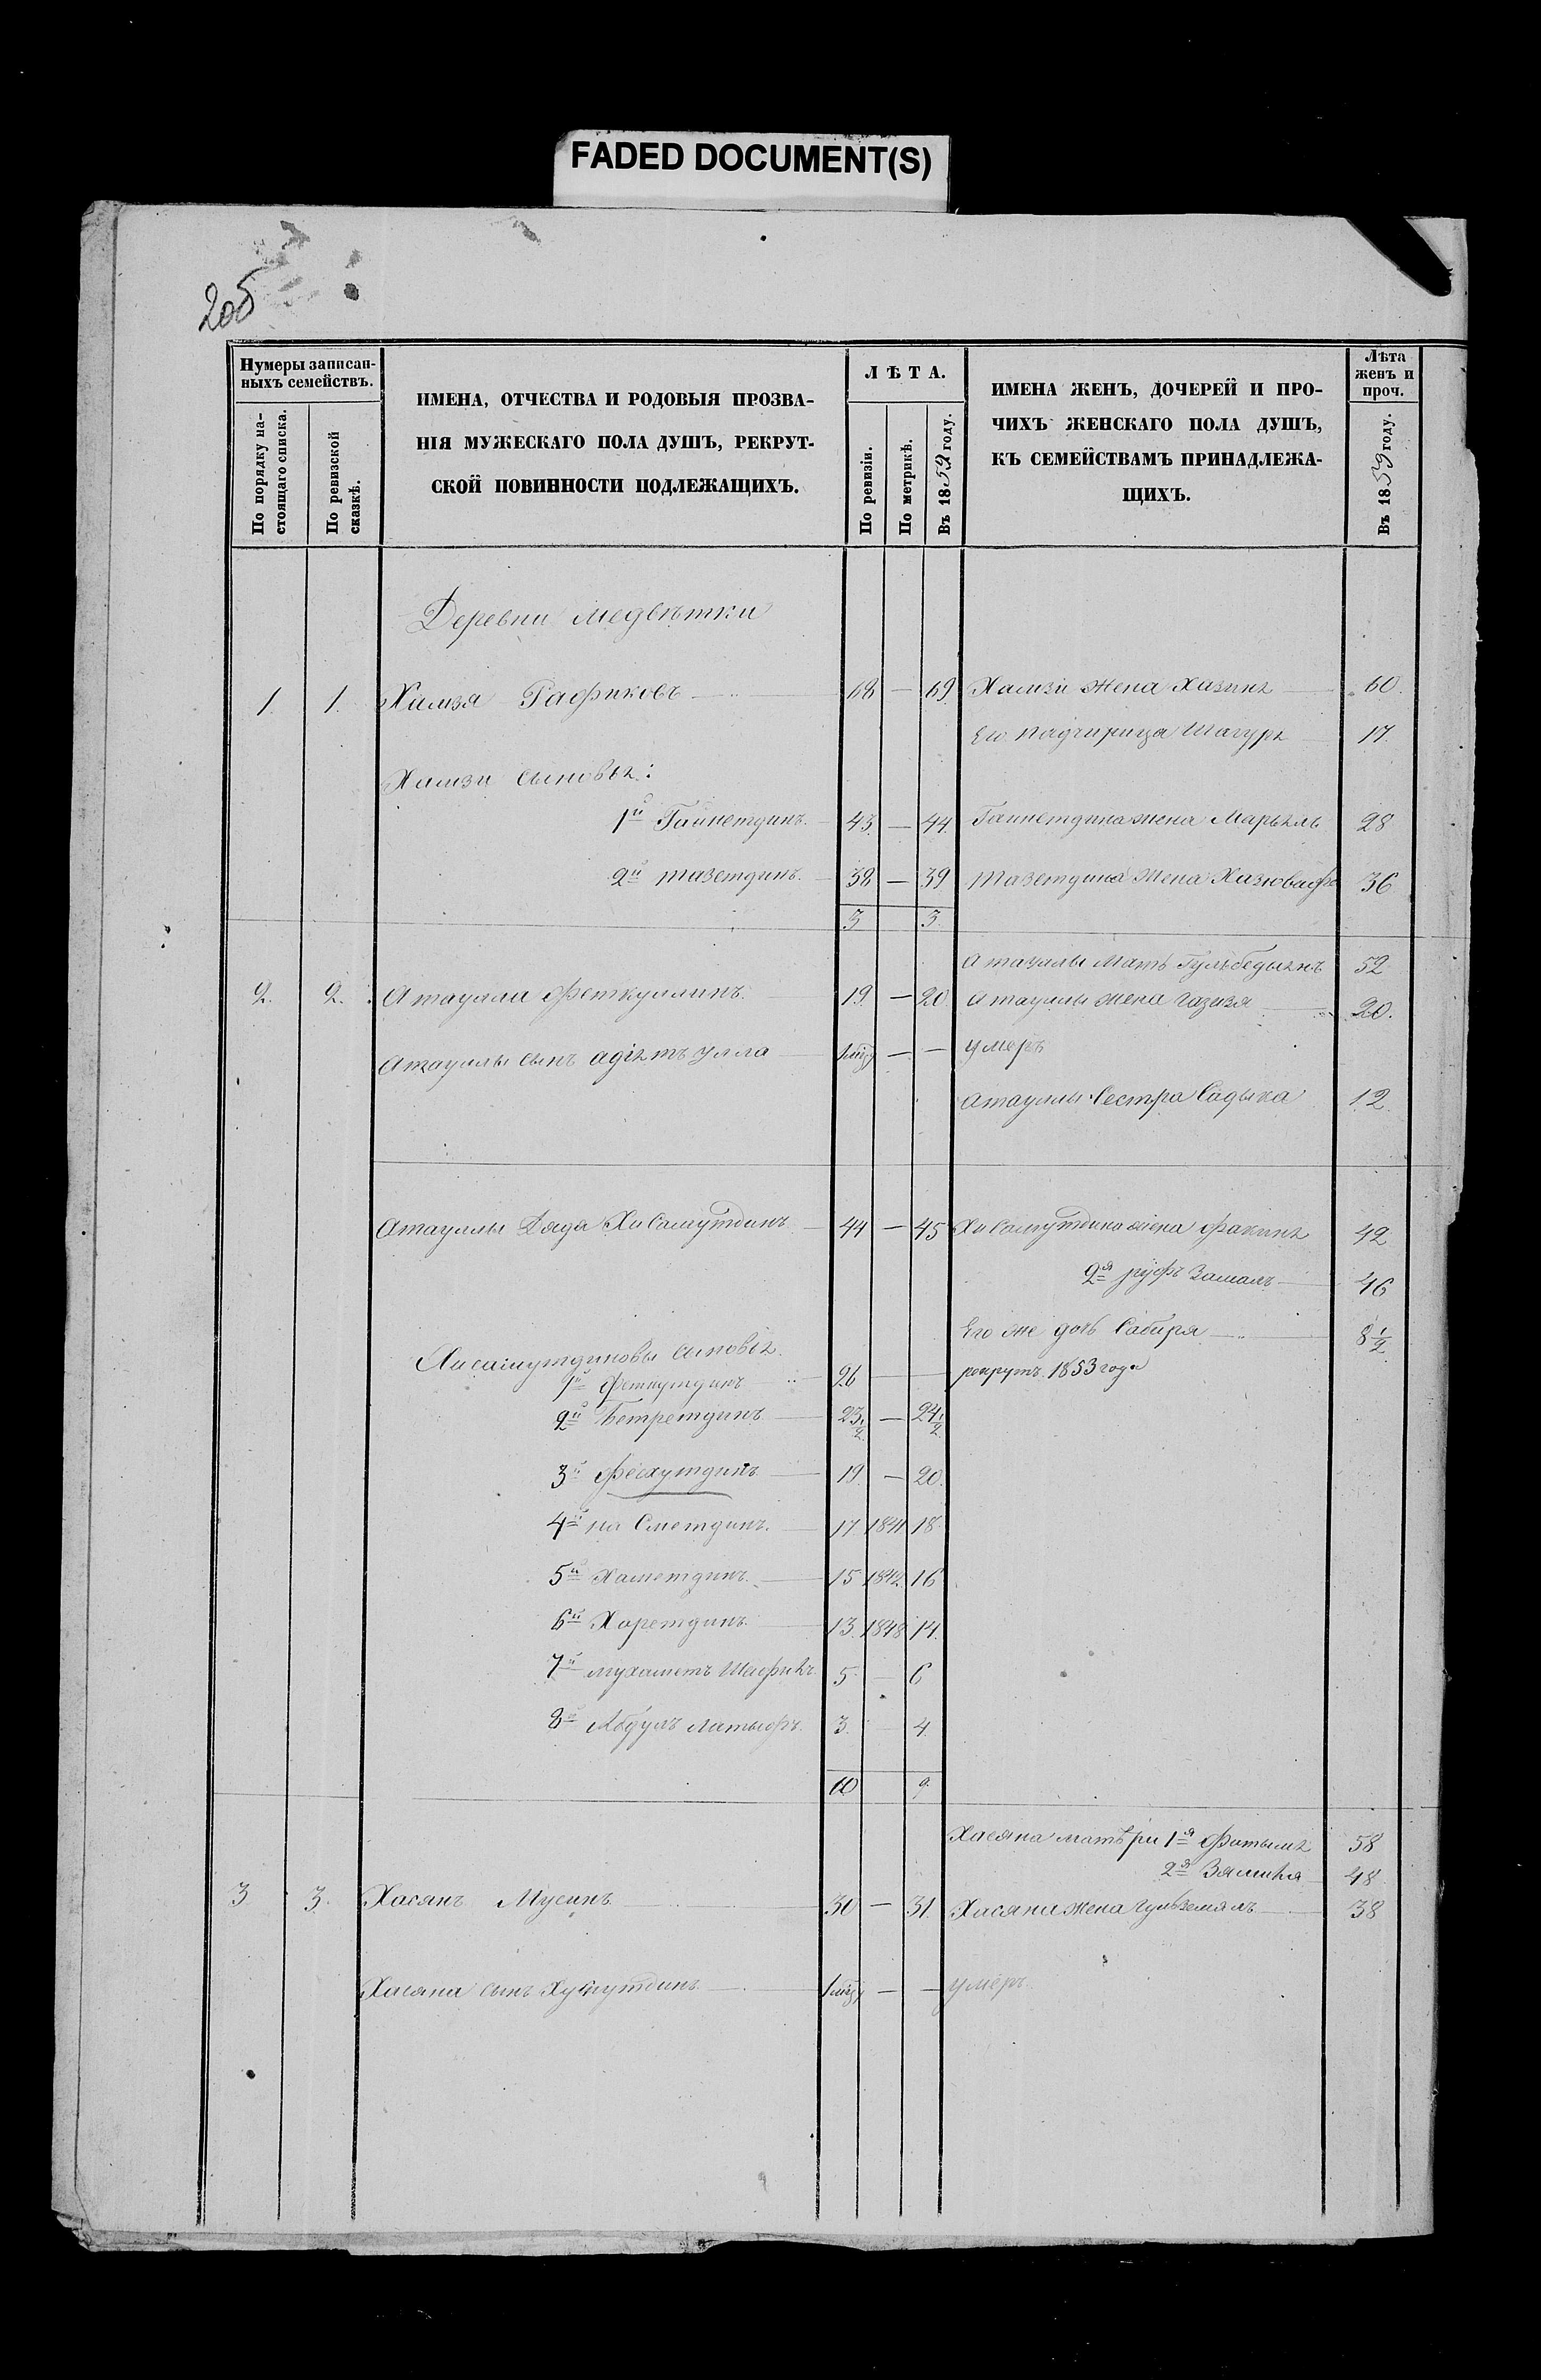 FADED DOCUMENT(S)
205
Нумеры записан-
ныхъ семействъ.
По порядку на-
стоящаго списка.
По ревизской
сказкѣ.
ИМЕНА, ОТЧЕСТВА И РОДОВЫЯ ПРОЗВА-
НІЯ МУЖЕСКАГО ПОЛА ДУШЪ, РЕКРУТ-
СКОЙ ПОВИННОСТИ ПОДЛЕЖАЩИХЪ.
ЛѢТА.
По ревизіи.
По метрикѣ.
Въ 1859 году.
ИМЕНА ЖЕНЪ, ДОЧЕРЕЙ И ПРО-
ЧИХЪ ЖЕНСКАГО ПОЛА ДУШЪ,
КЪ СЕМЕЙСТВАМЪ ПРИНАДЛЕЖА-
ЩИХЪ.
Лѣта
женъ и
проч.
Въ 1859 году.
Деревни Медвѣтки
1. 1. Хамзя Рафиковъ 68 — 69 Хамзи жена Хазинѣ 60.
Его падчирица Шагурѣ 17.
Хамзи сыновьѣ:
1й Гайнетдинъ. 43. — 44. Гайнетдина жена 28
2й Тазетдинъ. 38 — 39 Тазетдина жена 36
3 3.
Атауллы мать 52
2. 2. Атаулла Феткуллинъ. 19. — 20. Атауллы жена Газизя 20.
Атауллы сынъ — — умеръ
Атауллы сестра Садыка 12.
Атауллы дядя Хисамутдинъ 44 — 45 Хисамутдина жена Факинѣ 42
2я 46
Его же дочь Сабиря 8 1/2
Хисамутдиновы сыновьѣ.
1й 26 — — рекрутъ 1853 года
2й Бетретдинъ 23 1/2 — 24 1/2
3й Фесхутдинъ 19. — 20.
4й 17 1841 18
5й Хаметдинъ. 15 1842 16
6й Харетдинъ. 13. 1848 14.
7й Мухаметъ Шафикъ 5. — 6
8й Абдулъ Латыфъ. 3. 4.
10 9.
Хасяна матери 1я Фатымѣ 58
2я 48
3 3. Хасянъ Мусинъ 30 — 31. Хасяна жена Гульземялъ 38
Хасяна сынъ — — умеръ.